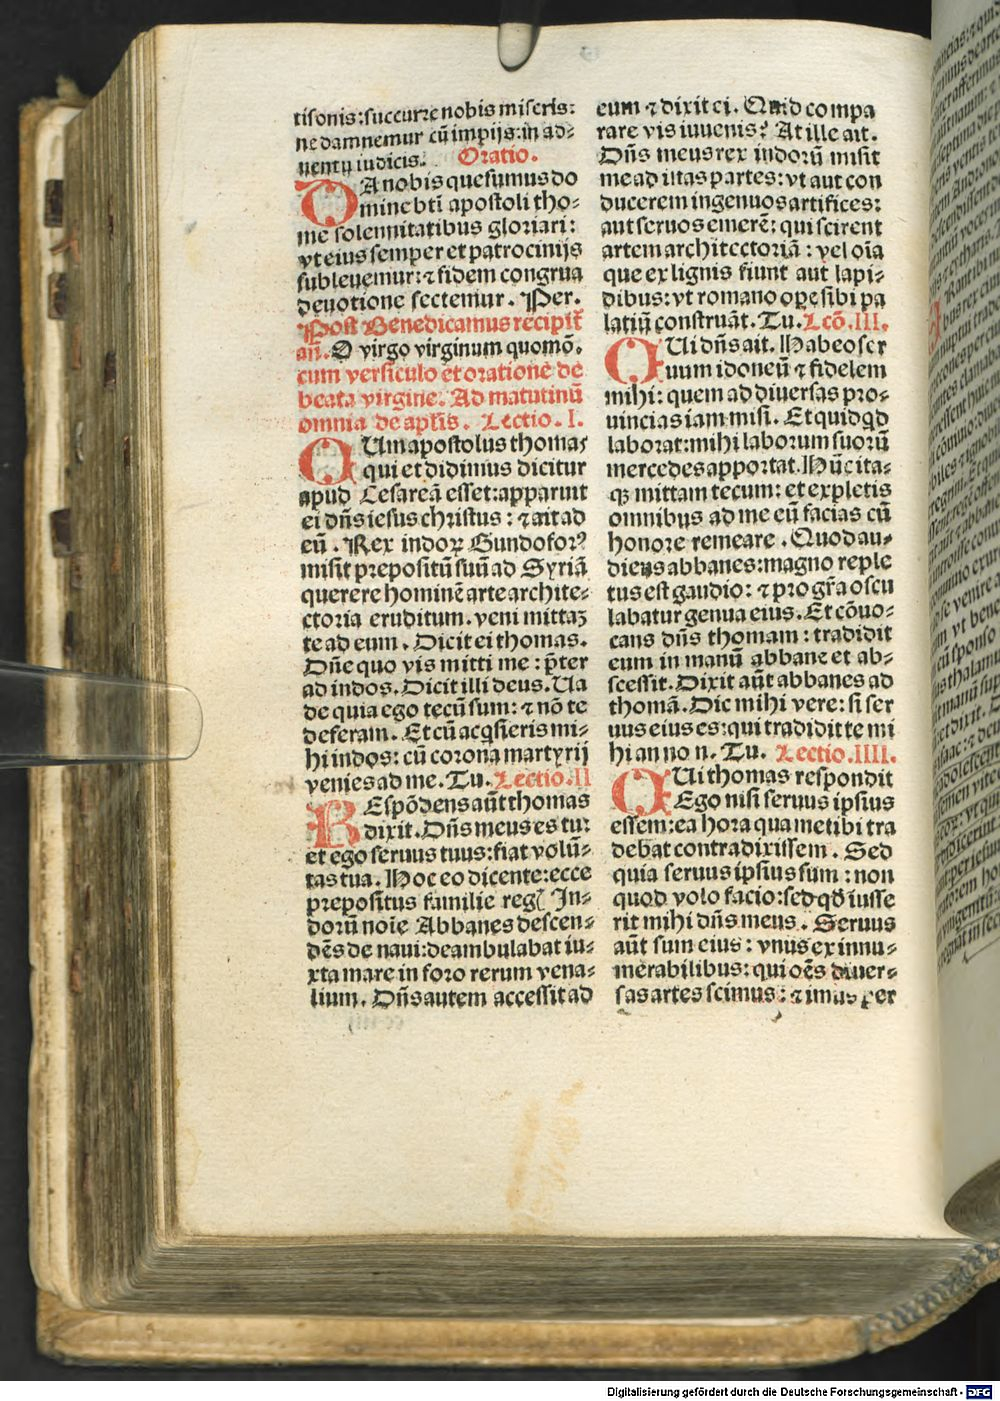 tisonis:succurre nobis miseris:
ne damnemur cū impijs:in ad⸗
uentu iudicis. Oratio.
DA nobis quesumus do
mine bti apostoli tho⸗
me solennitatibus gloriari:
vt eius semper et patrocinijs
subleuemur:⁊ fidem congrua
deuotione sectemur. Per.
Post Benedicamus recipit̄
an̄. O virgo virginum quomō.
cum versiculo et oratione de
beata virgine. Ad matutinū
omnia de aplīs. Lectio. I.
CUm apostolus thomas
qui et didimus dicitur
apud Cesareā esset:apparuit
ei dn̄s iesus christus: ⁊ ait ad
eū. Rex indoꝝ Gundofor⁹
misit prepositū suū ad Syriā
querere hominē arte archite⸗
ctoria eruditum. veni mittaꝫ
te ad eum. Dicit ei thomas.
Dn̄e quo vis mitti me: p̄ter
ad indos. Dicit illi deus. Ua
de quia ego tecū sum: ⁊ nō te
deseram. Et cū acq̄sieris mi⸗
hi indos: cū corona martyrij
venies ad me. Tu. Lectio. II
REspōdens aūt thomas
dixit. Dn̄s meus es tu:
et ego seruus tuus:fiat volū⸗
tas tua. Hoc eo dicente:ecce
prepositus familie reḡ In⸗
dorū noīe Abbanes descen⸗
dēs de naui:deambulabat iu⸗
xta mare in foro rerum vena⸗
lium. Dn̄s autem accessit ad
eum ⁊ dixit ei. Quid compa
rare vis iuuenis? At ille ait.
Dn̄s meus rex indorū misit
me ad istas partes: vt aut con
ducerem ingenuos artifices:
aut seruos emerē: qui scirent
artem architectoriā: vel oīa
que ex lignis fiunt aut lapi⸗
dibus: vt romano ope sibi pa
latiū construāt. Tu. Lcō. III.
CUi dn̄s ait. Habeo ser
uum idoneū ⁊ fidelem
mihi: quem ad diuersas pro⸗
uincias iam misi. Et quidqd
laborat:mihi laborum suorū
mercedes apportat. Hūc ita⸗
qꝫ mittam tecum: et expletis
omnibus ad me eū facias cū
honore remeare. Quod au⸗
diens abbanes:magno reple
tus est gaudio: ⁊ p gr̄a oscu
labatur genua eius. Et cōuo⸗
cans dn̄s thomam: tradidit
eum in manū abbane et ab⸗
scessit. Dixit aūt abbanes ad
thomā. Dic mihi vere: si ser
uus eius es:qui tradidit te mi
hi an non. Tu. Lectio. IIII.
CUi thomas respondit
Ego nisi seruus ipsius
essem: ea hora qua me tibi tra
debat contradixissem. Sed
quia seruus ipsius sum: non
quod volo facio: sed qd iusse
rit mihi dn̄s meus. Seruus
aūt sum eius: vnus ex innu⸗
merabilibus: qui oēs diuer⸗
sas artes scimus: ⁊ imus per
Digitalisierung gefördert durch die Deutsche Forschungsgemeinschaft - DFG